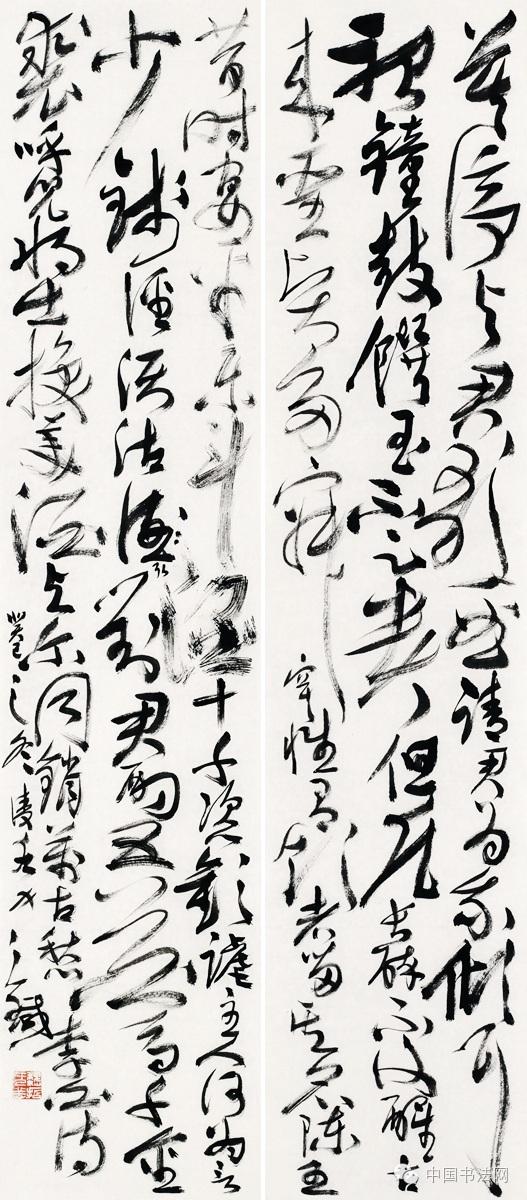 莫停与君歌一曲请君为我倾耳
听鐘鼓饌玉不足贵但愿长醉不復醒古
来圣贤皆寂寞惟有饮者留其名陈王
昔时宴平乐斗酒十千恣歡謔主人何为言
少錢径须沽取对君酌五花马千金
裘呼儿将出换美酒与尔同銷萬古愁李白诗
癸巳之冬
中国书法网